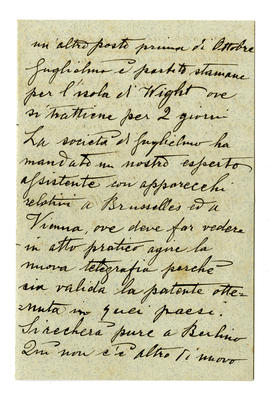 un altro posto prima di Ottobre
Guglielmo è partito stamane
per l'isola di Wight ove
si trattiene per 2 giorni
La società di Guglielmo ha
mandato un nostro esperto
assistente con apparecchi
relativi a Brusselles ed a
Vienna, ove deve far vedere
in atto pratico agire la
nuova telegrafia perchè
sia valida la patente otte-
nuta in quei paesi.
Si recherà pure a Berlino
Qui non c'è altro di nuovo